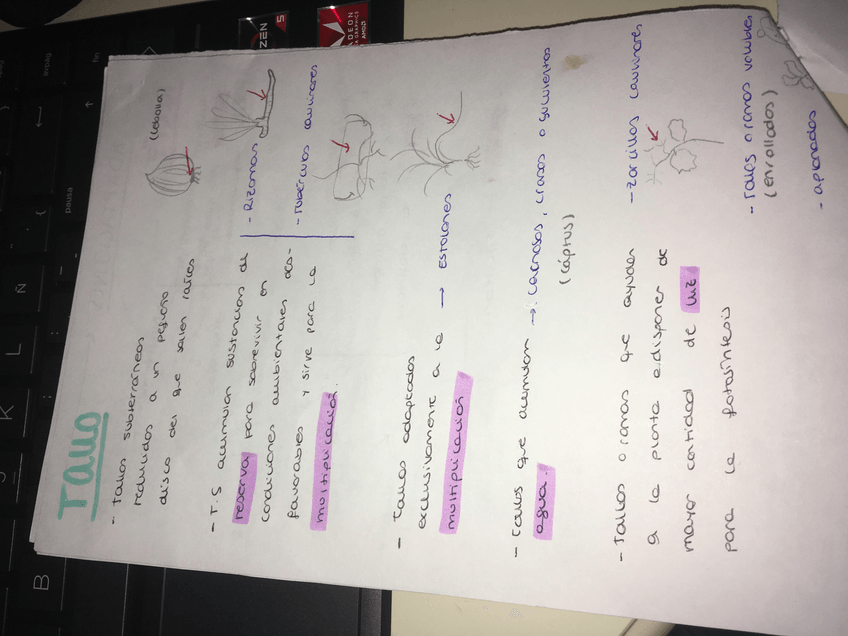 Tallo
- Tallos subterráneos
reducidos a un pequeño
disco del que salen raíces
(cebolla)
- T.S acumulan sustancias de
reserva para sobrevivir en
condiciones ambientales des-
favorables y sirve para la
multiplicación.
- Rizomas
- Tubérculos caulinares
- Tallos adaptados
exclusivamente a la → Estolones
multiplicación
- Tallos que acumulan →: carnosos, crasos o suculentos
agua.
(cáptus)
- Tallos o ramas que ayudan
a la planta a disponer de
mayor cantidad de luz
para la fotosíntesis
- zarcillos caulinares
- Tallos o ramas volubles
(enrollados)
- apoyados
ZEN
5
RADEON
GRAPHICS
AMD
pausa
fin
Ñ
L
K
J
B